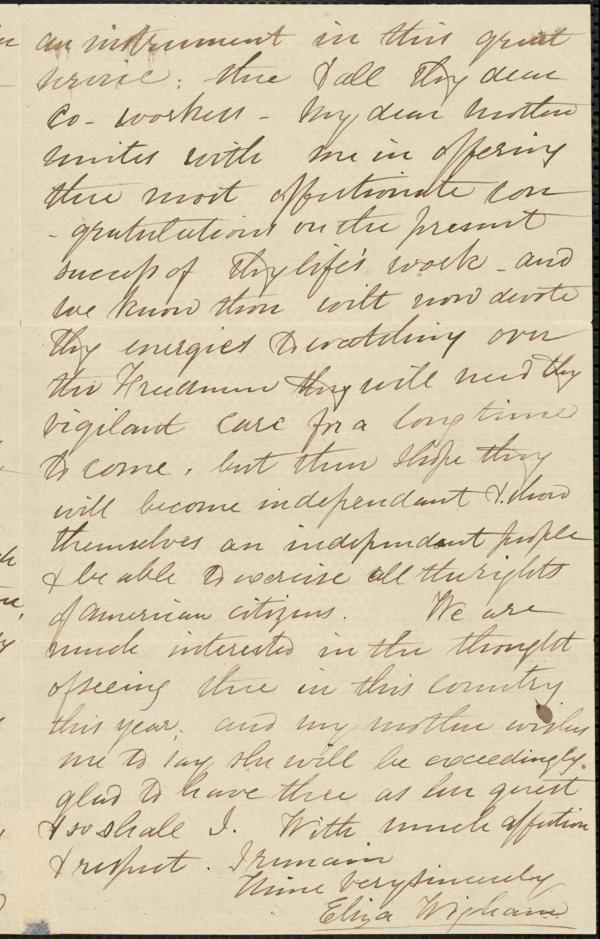 an instrument in this great
heroic; thee & all thy dear
co-workers - My dear mother
unites with me in offering
thee most affectionate con
-gratulations on the present
success of thy life's work - and
we know thou wilt now devote
thy energies to watching over
the Freedmen they will need thy
vigilant care for a long time
to come, but then I hope they
will become independant & show
themselves an independent people
& be able to exercise all the rights
of american citizens. We are
much interested in the thought
of seeing thee in this country
this year, and my mother wishes
me to say she will be exceedingly
glad to have thee as her guest
& so shall I. With much affection
& respect. I remain
Thine very sincerely
Eliza Wigham